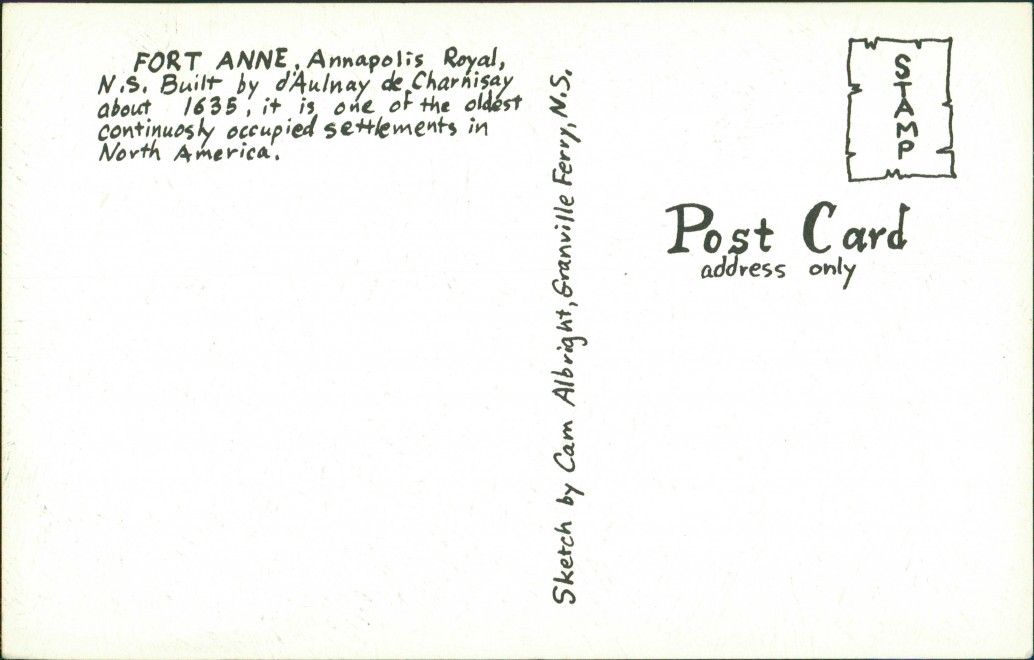 FORT ANNE, Annapolis Royal,
N.S. Built by d'Aulnay de Charnisay
about 1635, it is one of the oldest
continuosly occupied settlements in
North America.
Sketch by Cam Albright, Granville Ferry, N.S.
STAMP
Post Card
address only